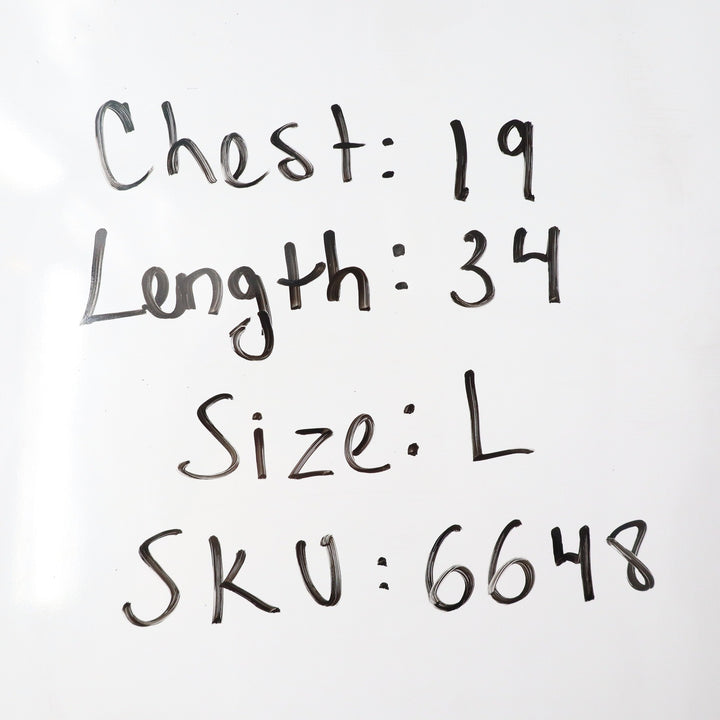 Chest: 19
Length: 34
Size: L
SKU: 6648